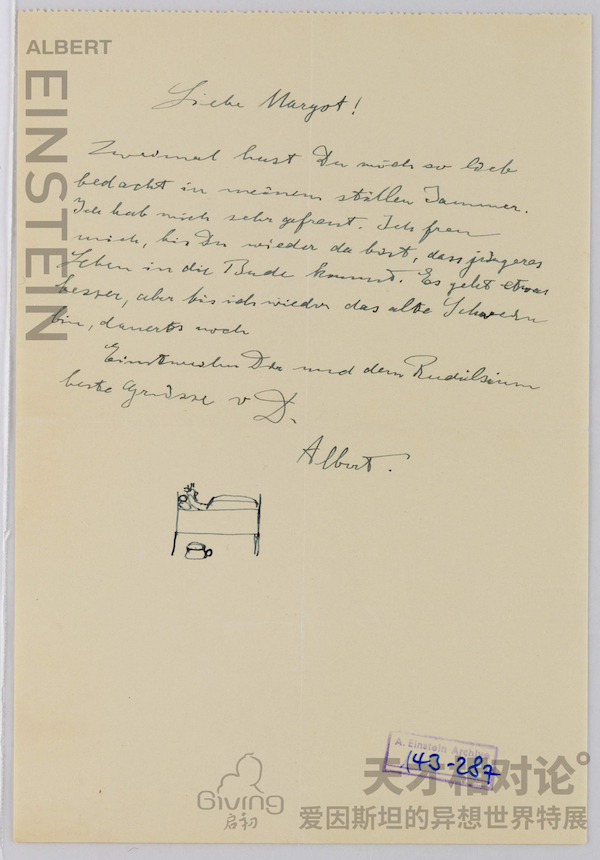 ALBERT
EINSTEIN
Liebe Margot!
Zweimal hast Du mich so lieb
bedacht in meinem stillen Jammer.
Ich hab mich sehr gefreut. Ich freu
mich, bis Du wieder da bist, dass jüngeres
Leben in die Bude kommt. Es geht etwas
besser, aber bis ich wieder das alte Schwein
bin, dauerts noch
Einstweilen Dir und dem
beste Grüsse v D.
Albert.
A. Einstein Archive
143-287
天才相对论
Giving
启初
爱因斯坦的异想世界特展